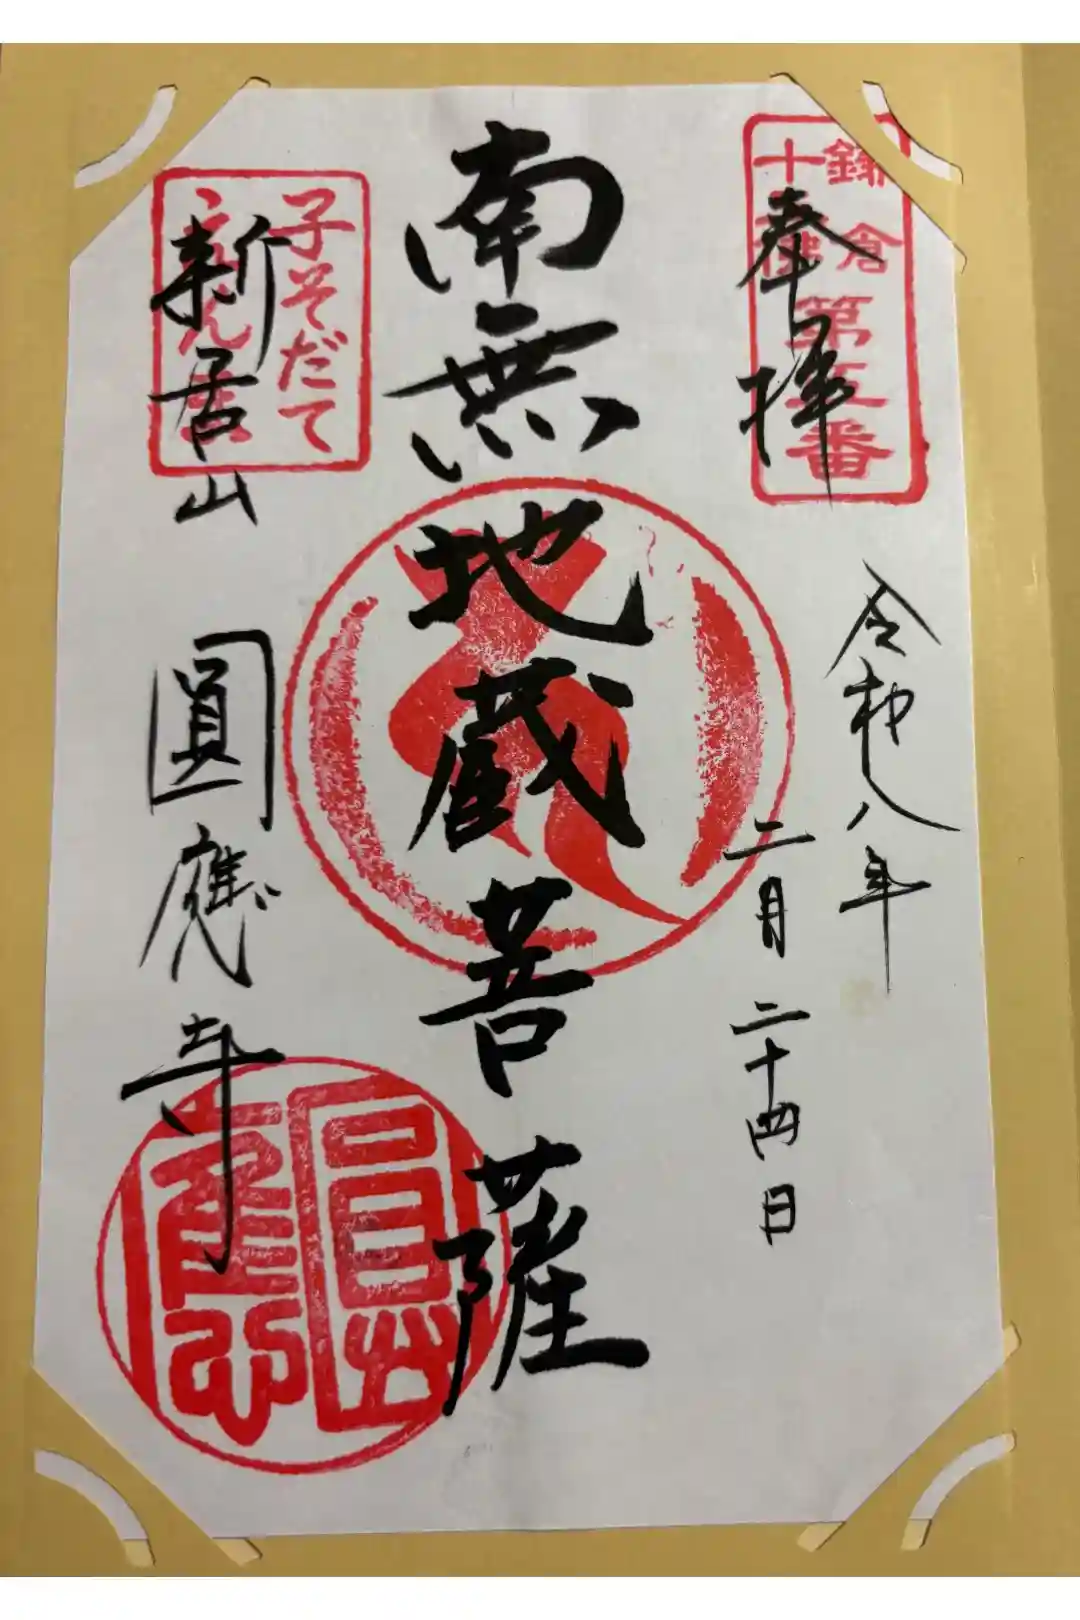 鎌倉
第五番
奉拝
令和八年
二月二十四日
南無地蔵菩薩
子そだて
新居山
圓應寺